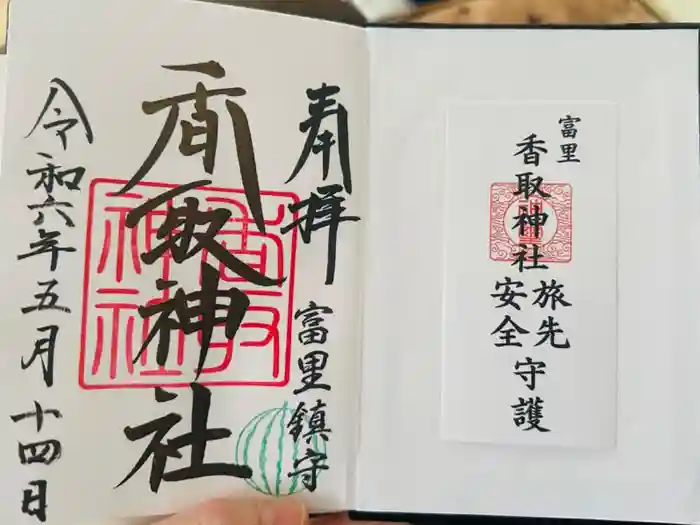 富里
香取神社
旅先
安全
守護
奉拝
富里鎮守
香取神社
香取
神社
令和六年五月十四日